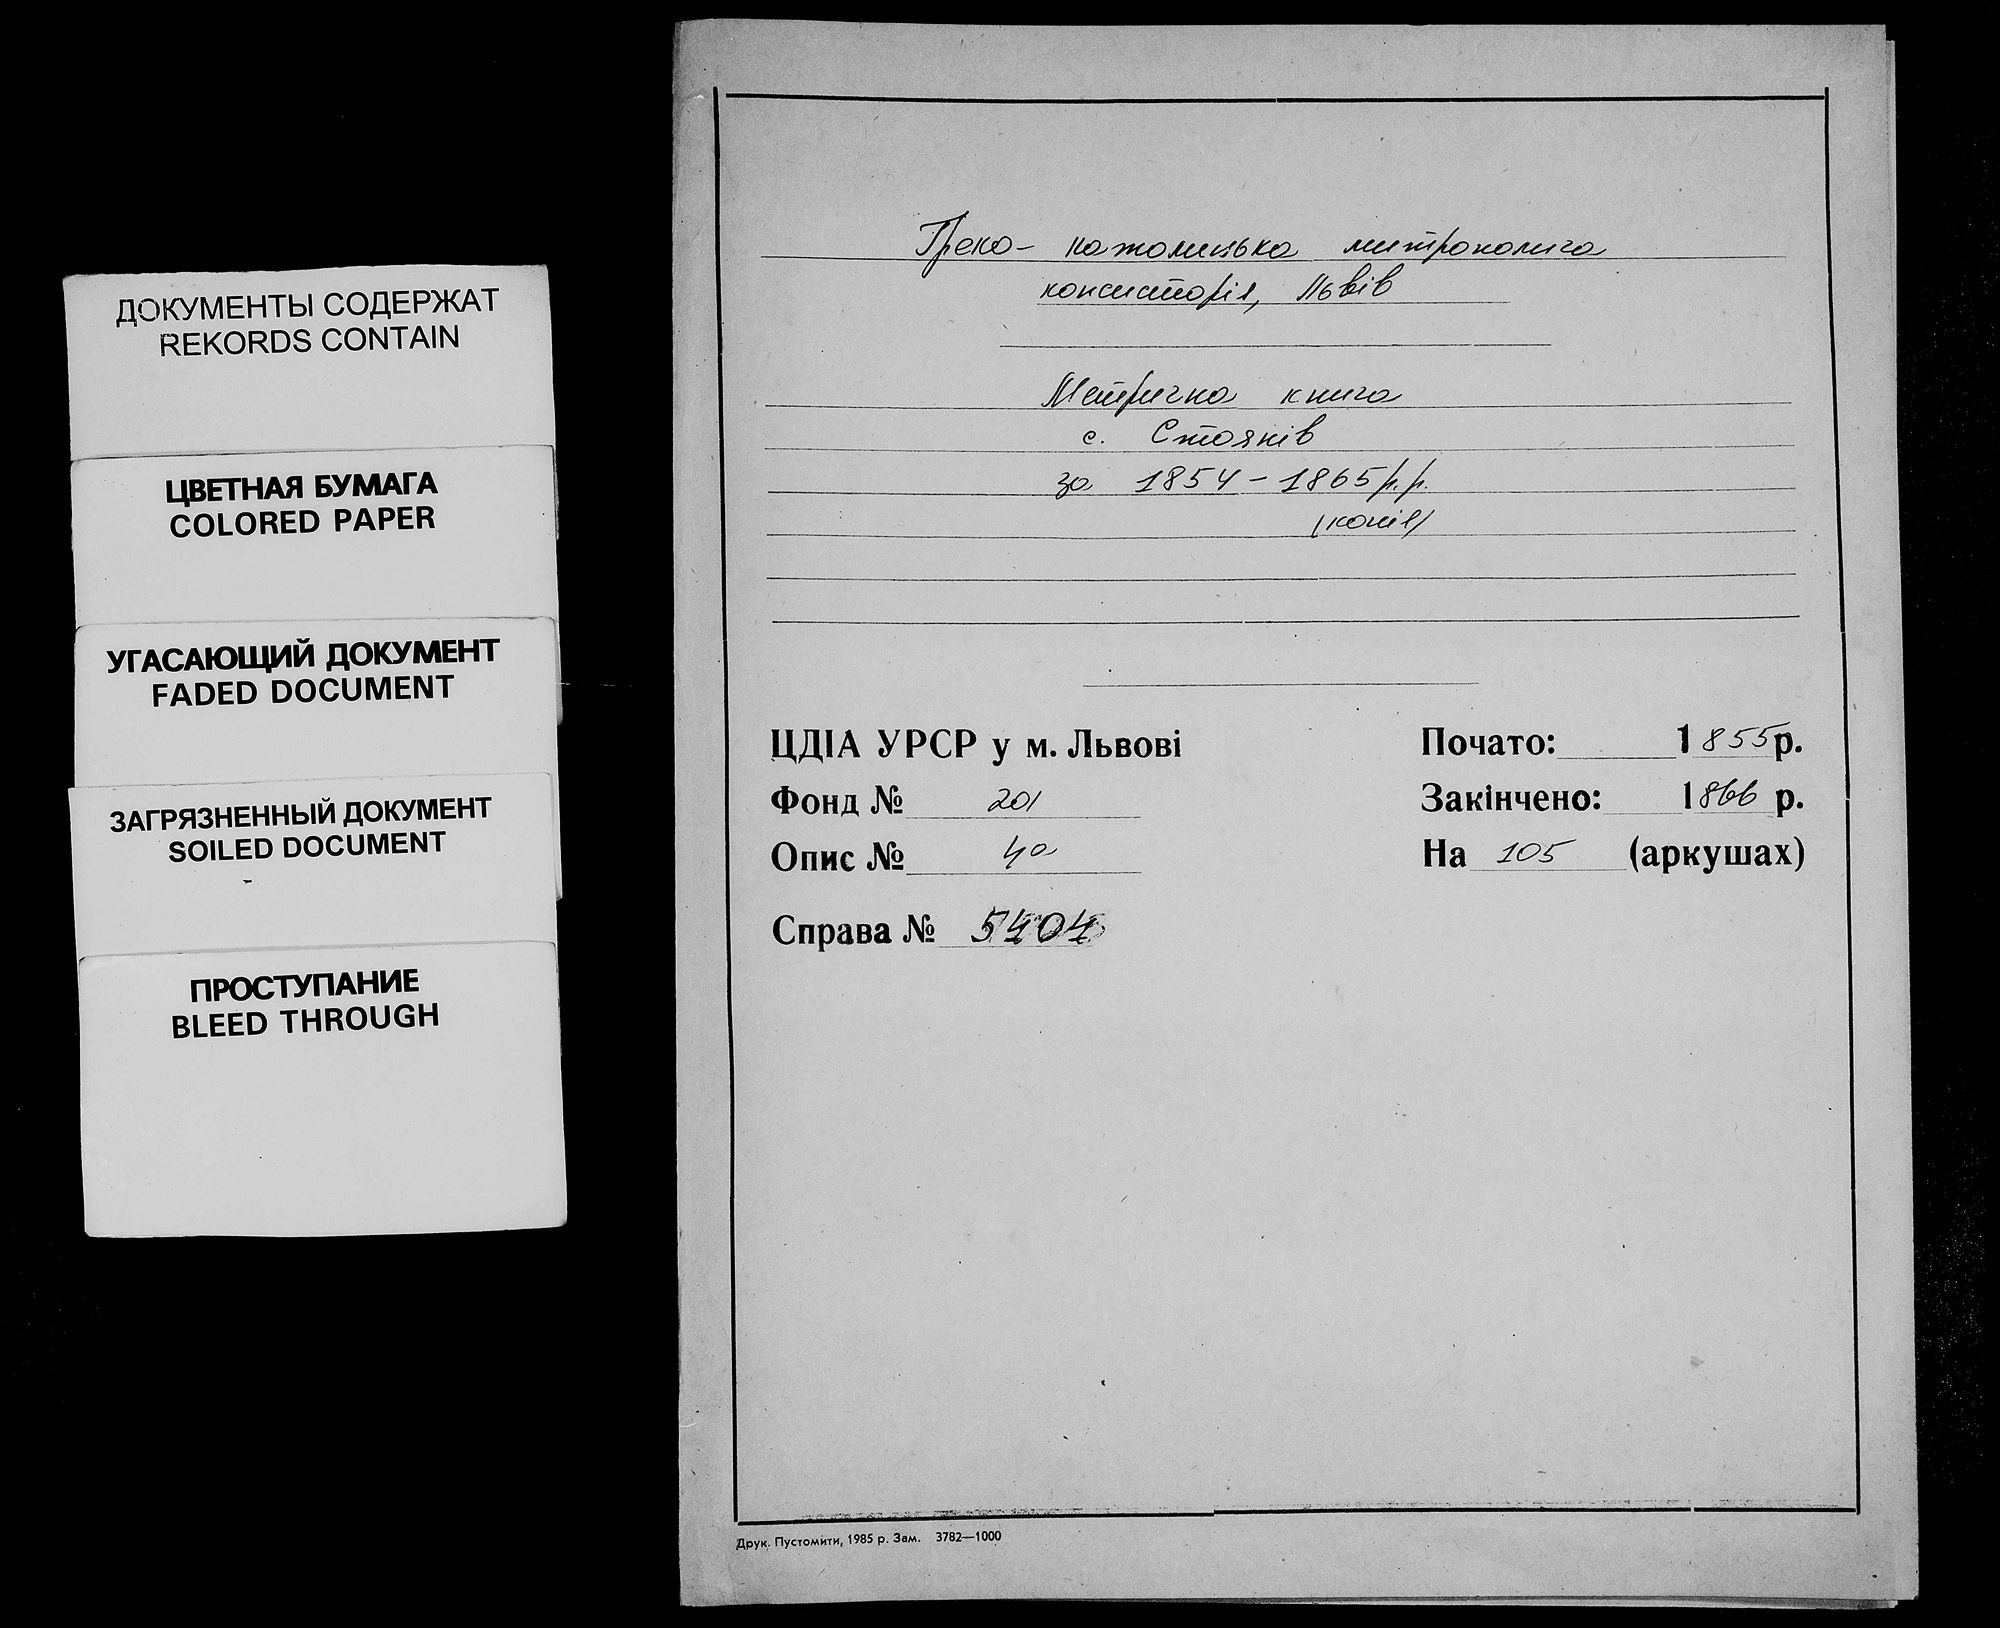 ДОКУМЕНТЫ СОДЕРЖАТ
REKORDS CONTAIN
ЦВЕТНАЯ БУМАГА
COLORED PAPER
УГАСАЮЩИЙ ДОКУМЕНТ
FADED DOCUMENT
ЗАГРЯЗНЕННЫЙ ДОКУМЕНТ
SOILED DOCUMENT
ПРОСТУПАНИЕ
BLEED THROUGH
Греко-католицька митрополича
консисторія, Львів
Метрична книга
с. Стоянів
за 1854-1865 р.р.
(копія)
ЦДІА УРСР у м. Львові
Фонд № 201
Опис № 4а
Справа № 5404
Почато: 1855 р.
Закінчено: 1866 р.
На 105 (аркушах)
Друк. Пустомити, 1985 р. Зам. 3782—1000